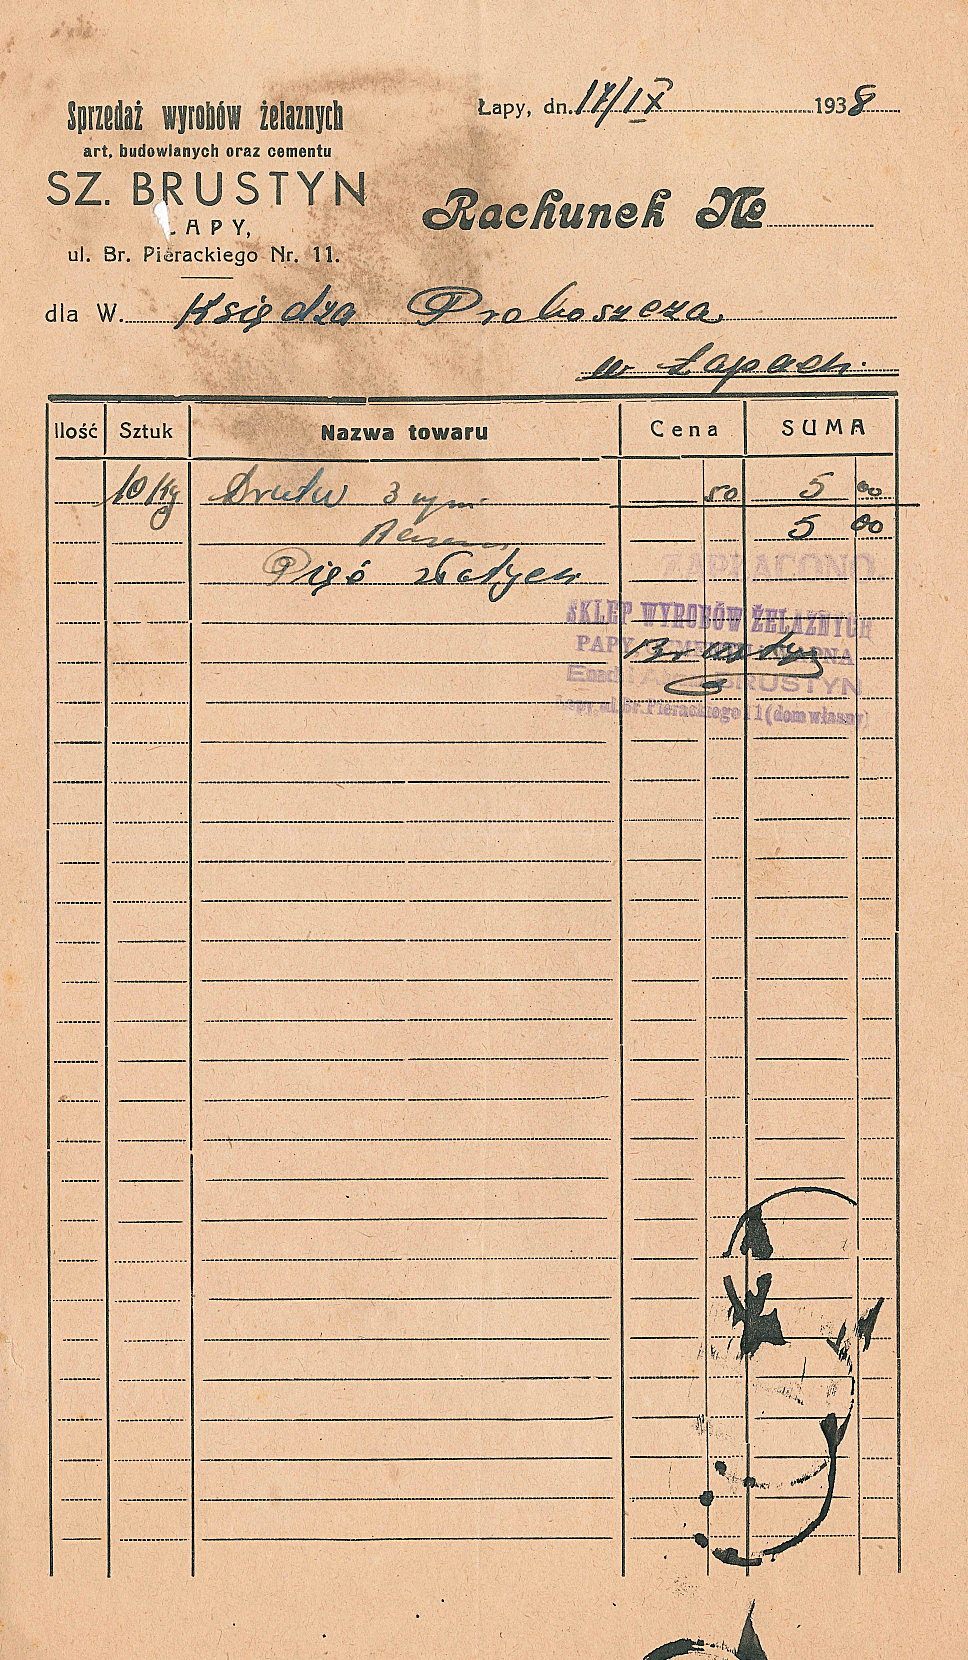 Sprzedaż wyrobów żelaznych
art. budowlanych oraz cementu
SZ. BRUSTYN
ŁAPY,
ul. Br. Pierackiego Nr. 11.
Łapy, dn. 17/IX 1938
Rachunek №
dla W. Księdza Proboszcza
w Łapach
Ilość Sztuk Nazwa towaru Cena SUMA
10 Kg Drutu 3 mm 50 5 00
Razem 5 00
Pięć złotych
ZAPŁACONO
SKLEP WYROBÓW ŻELAZNYCH
PAPY CEMENTU WAPNA
BRUSTYN
Łapy, ul. Br. Pierackiego 11 (dom własny)